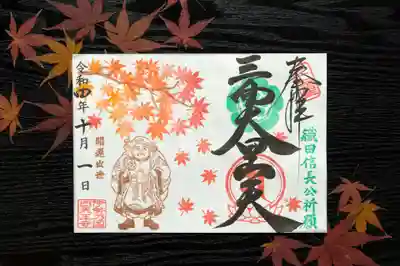 奉拝
織田信長公祈願
三面大黒天
開運出世
令和四年十月一日